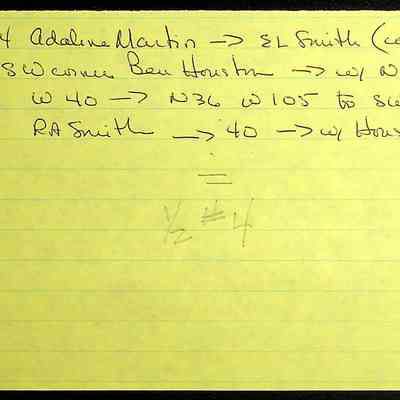 4 Adaline Martin → SL Smith (co
SW corner Ben Houston → w/ N
W 40 → N36 W 105 to SW
RA Smith → 40 → w/ Hous
=
1/2 #4